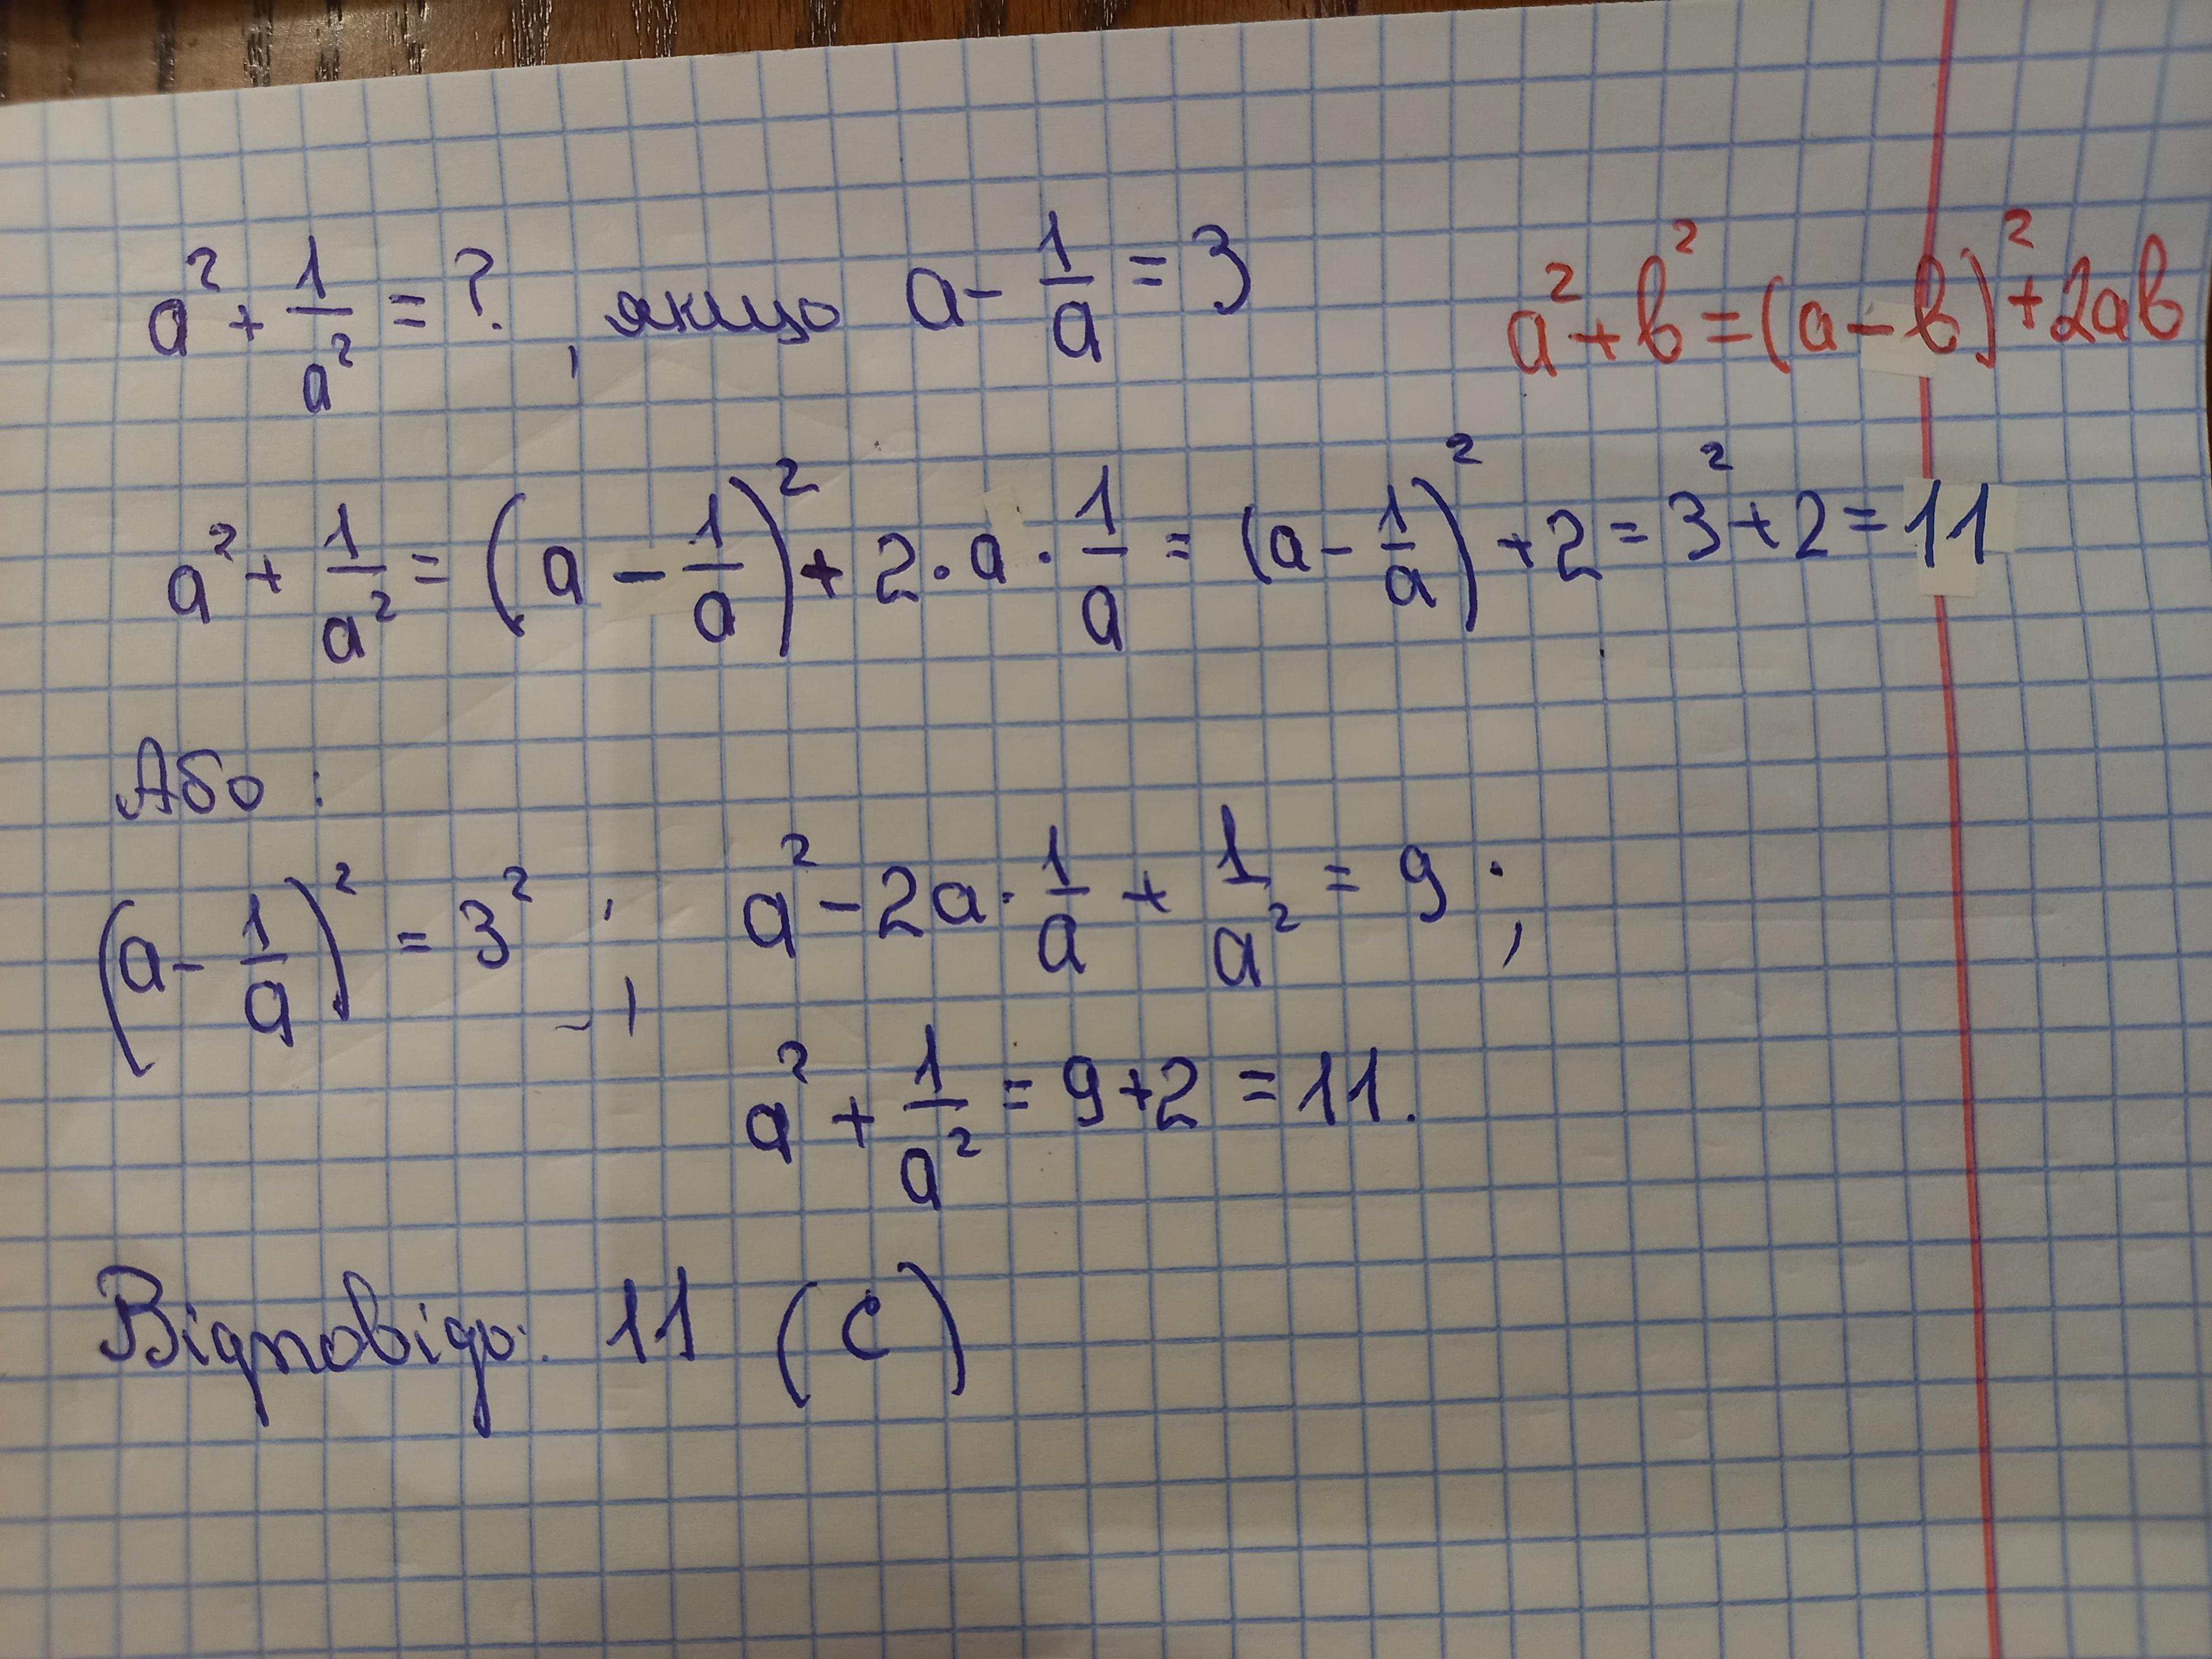 a² + 1/a² = ?, якщо a - 1/a = 3
a² + b² = (a - b)² + 2ab
a² + 1/a² = (a - 1/a)² + 2 · a · 1/a = (a - 1/a)² + 2 = 3² + 2 = 11
Або:
(a - 1/a)² = 3² ; a² - 2a · 1/a + 1/a² = 9 ;
a² + 1/a² = 9 + 2 = 11.
Відповідь: 11 (C)